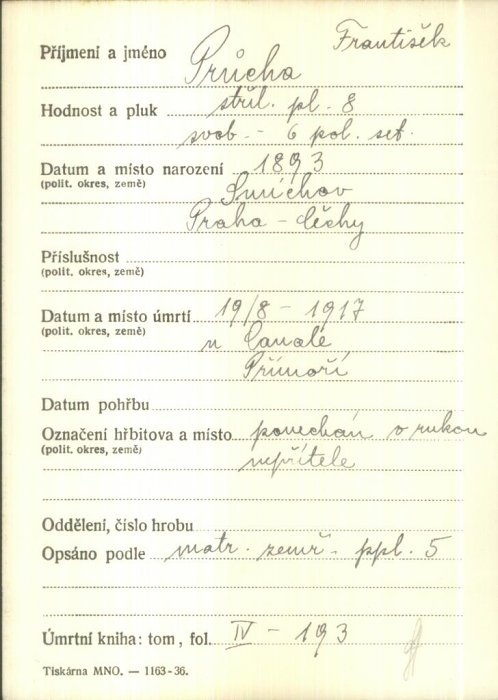 František
Příjmení a jméno Průcha
Hodnost a pluk střel. pl. 8
svob. - 6 pol. set.
Datum a místo narození 1893
(polit. okres, země) Smíchov
Praha - Čechy
Příslušnost
(polit. okres, země)
Datum a místo úmrtí 19/8 - 1917
(polit. okres, země) u Canale
Přímoří
Datum pohřbu
Označení hřbitova a místo ponechán v rukou
(polit. okres, země) nepřítele
Oddělení, číslo hrobu
Opsáno podle matr. zemř. ppl. 5
Úmrtní kniha: tom, fol. IV - 193
Tiskárna MNO. — 1163-36.